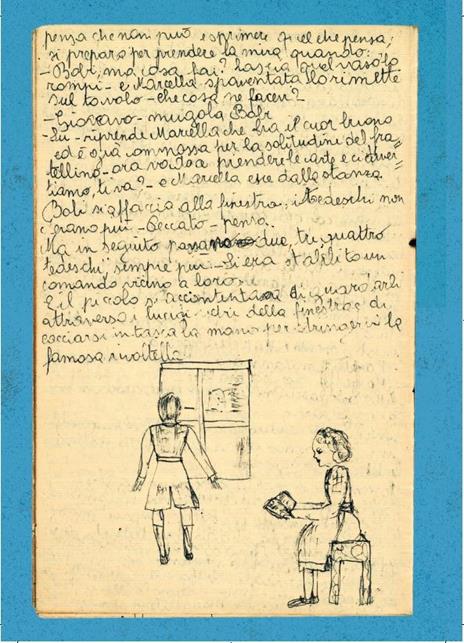 pensa che non può esprimere quel che pensa,
si prepara per prendere la mira quando:
- Bobi, ma cosa fai? lascia quel vaso lo
rompi - e Marcella spaventata lo rimette
sul tavolo - che cosa ne facevi? -
- Giocavo - mugola Bobi
- Su - riprende Marcella che ha il cuor buono
ed è già commossa per la solitudine del fra=
tellino - ora vado a prendere le carte e ci diver=
tiamo, ti va? - e Marcella esce dalla stanza.
Bobi si affaccia alla finestra, i tedeschi non
c'erano più - Peccato - pensa.
Ma in seguito passano due, tre, quattro
tedeschi, sempre più - Si era stabilito un
comando vicino a loro.
E il piccolo si accontentava di guardarli
attraverso i lucidi vetri della finestra e di
cacciarsi in tasca la mano per stringervi la
famosa rivoltella.